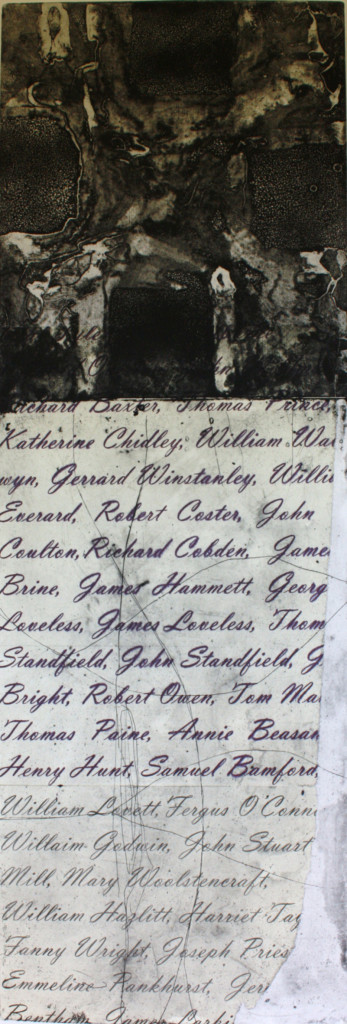 Richard Baxter, Thomas Prince,
Katherine Chidley, William Wa
wyn, Gerrard Winstanley, Willi
Everard, Robert Coster, John
Coulton, Richard Cobden, Jame
Brine, James Hammett, Georg
Loveless, James Loveless, Thom
Standfield, John Standfield, G
Bright, Robert Owen, Tom Ma
Thomas Paine, Annie Beasan
Henry Hunt, Samuel Bamford,
William Lovett, Fergus O'Conn
Willaim Godwin, John Stuart
Mill, Mary Woolstencraft,
William Hazlitt, Harriet Tay
Fanny Wright, Joseph Pries
Emmeline Pankhurst, Jer
Bentham, James Larki